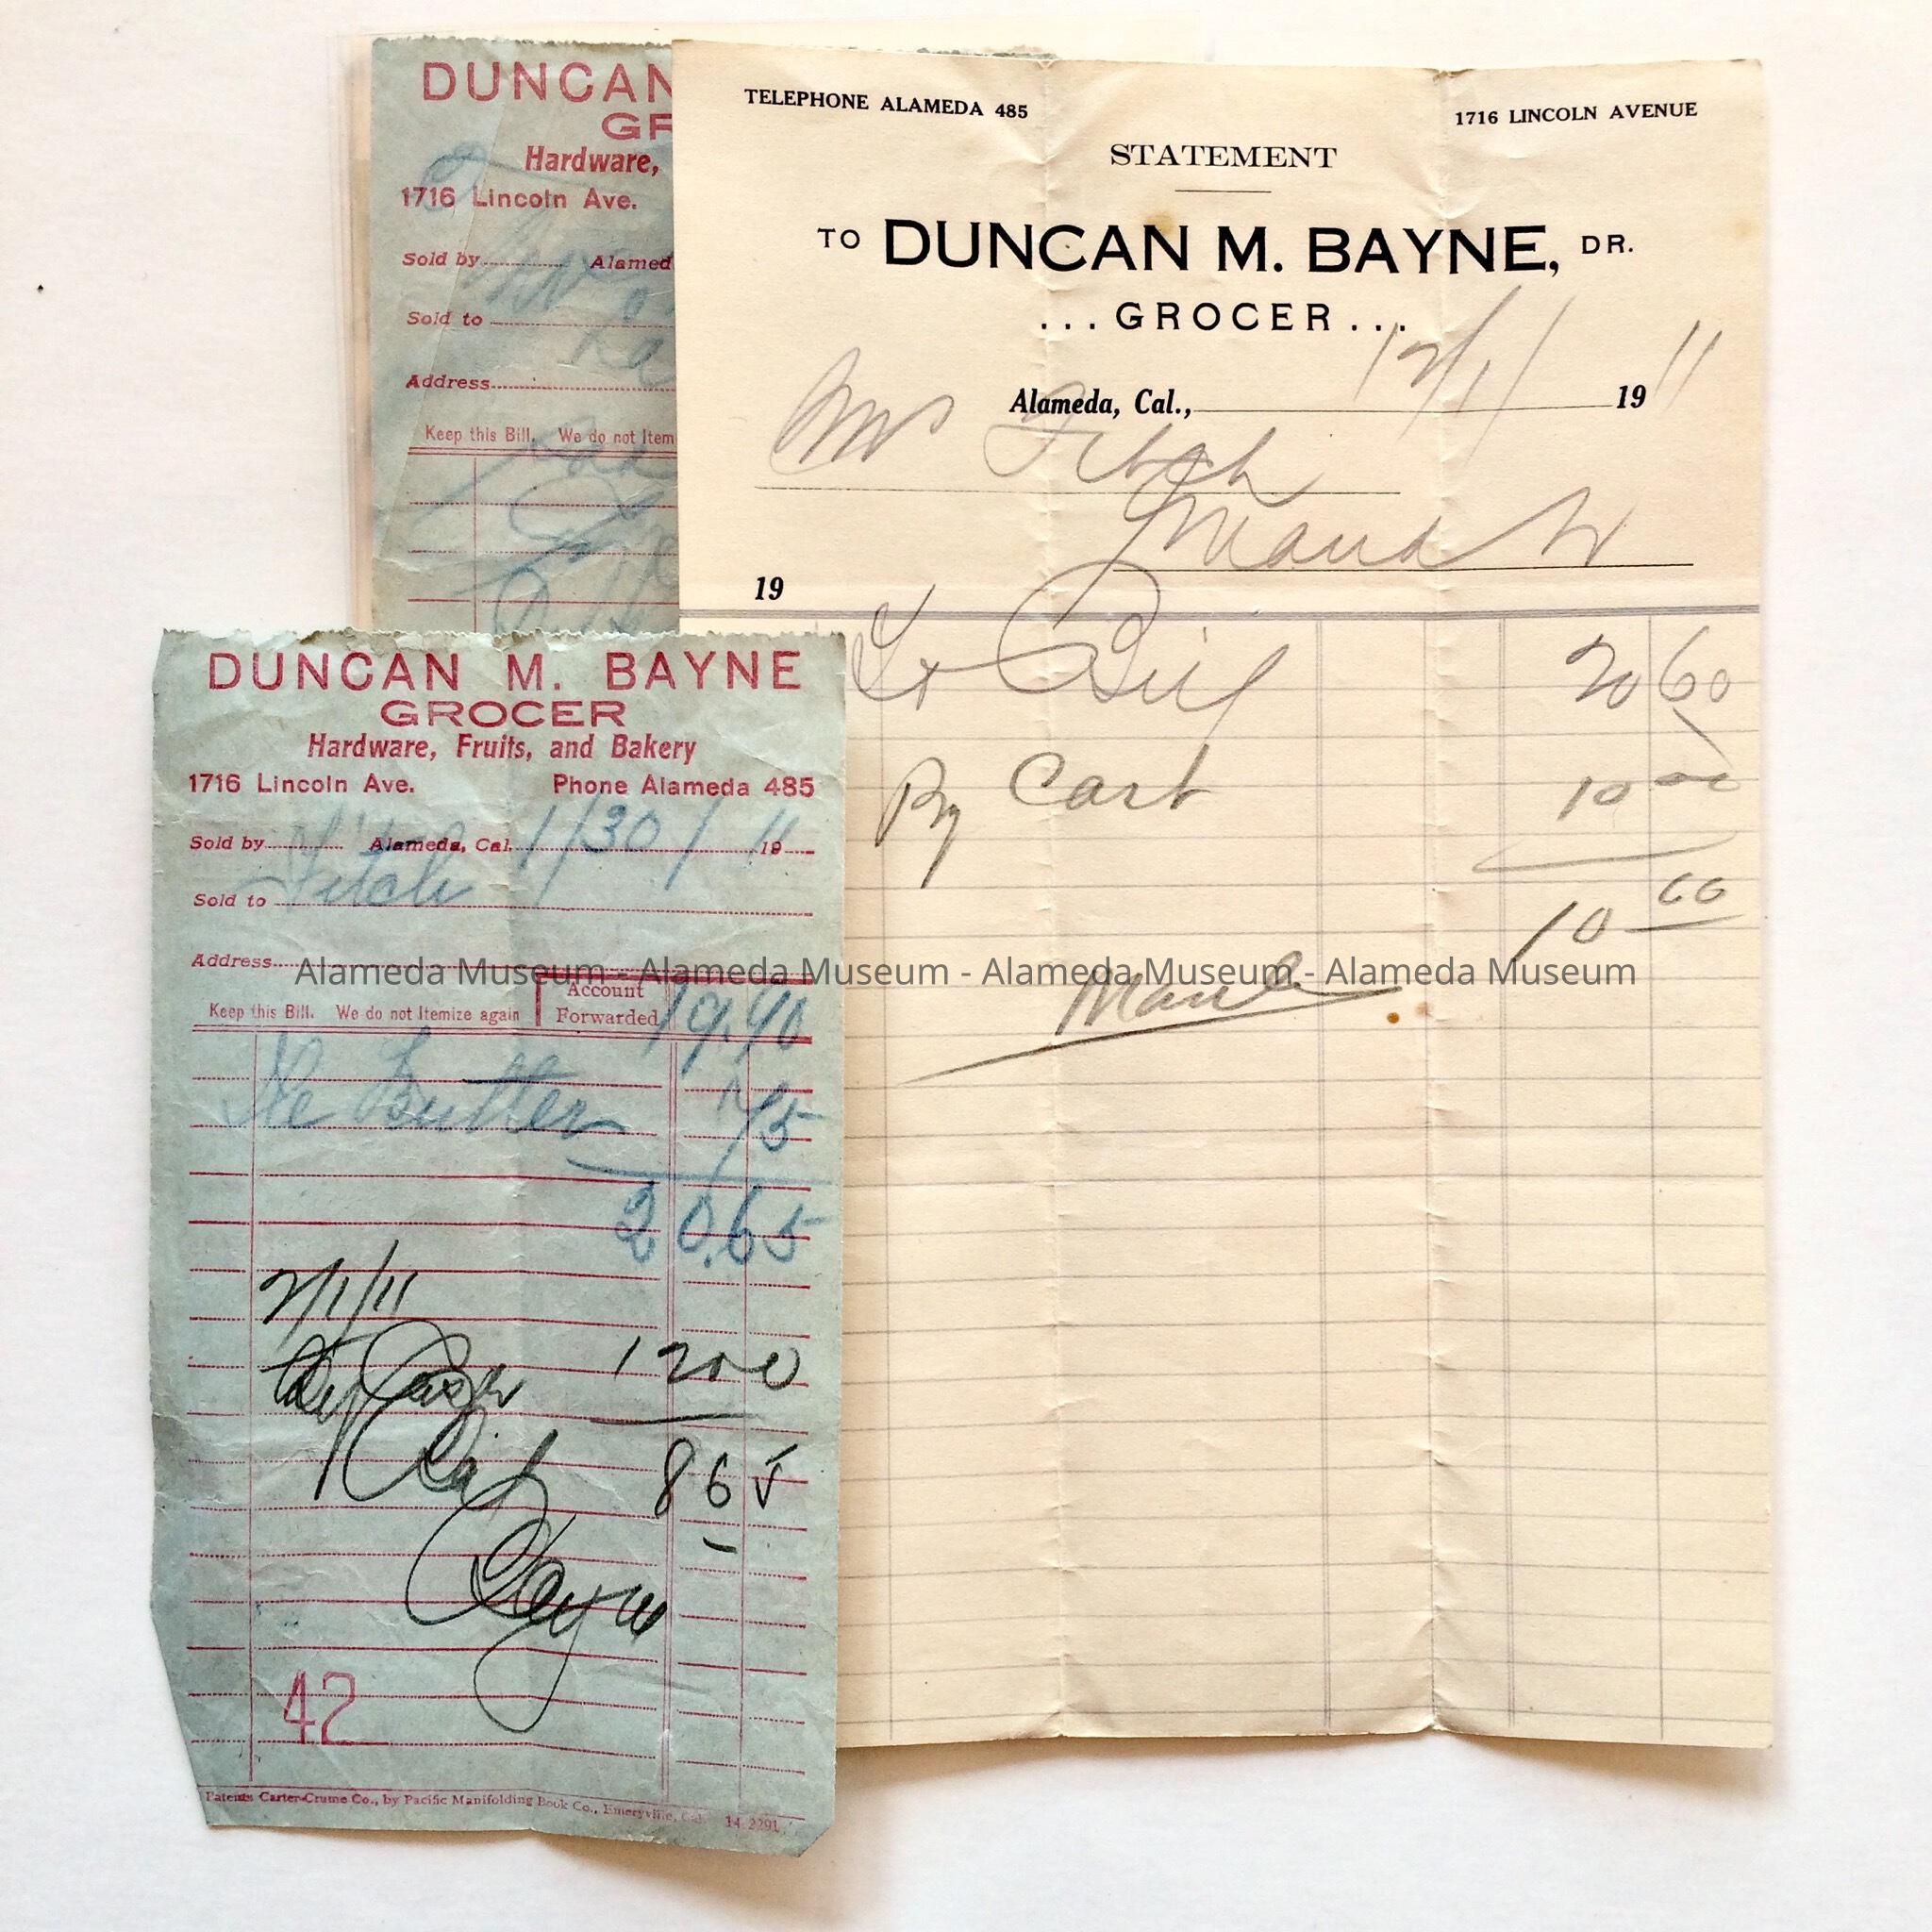 DUNCAN
GR
Hardware,
1716 Lincoln Ave.
Sold by Alamed
Sold to
Address
Keep this Bill. We do not Item
TELEPHONE ALAMEDA 485 1716 LINCOLN AVENUE
STATEMENT
TO DUNCAN M. BAYNE, DR.
...GROCER...
Alameda, Cal., 12/1/ 19 11
Mrs Fitch
19
To Bill 20 60
By Cash 10 00
10 60
DUNCAN M. BAYNE
GROCER
Hardware, Fruits, and Bakery
1716 Lincoln Ave. Phone Alameda 485
Sold by Alameda, Cal. 1/30/ 19 11
Sold to Fitch
Address
Keep this Bill. We do not Itemize again Account Forwarded 19.40
Butter
20.65
2/1/11
By Cash 12 00
8 65
Bayne
42
Patents Carter-Crume Co., by Pacific Manifolding Book Co., Emeryville, Cal. 14 2291
Alameda Museum - Alameda Museum - Alameda Museum - Alameda Museum